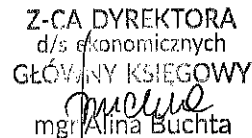 Z-CA DYREKTORA
d/s ekonomicznych
GŁÓWNY KSIĘGOWY
mgr Alina Buchta